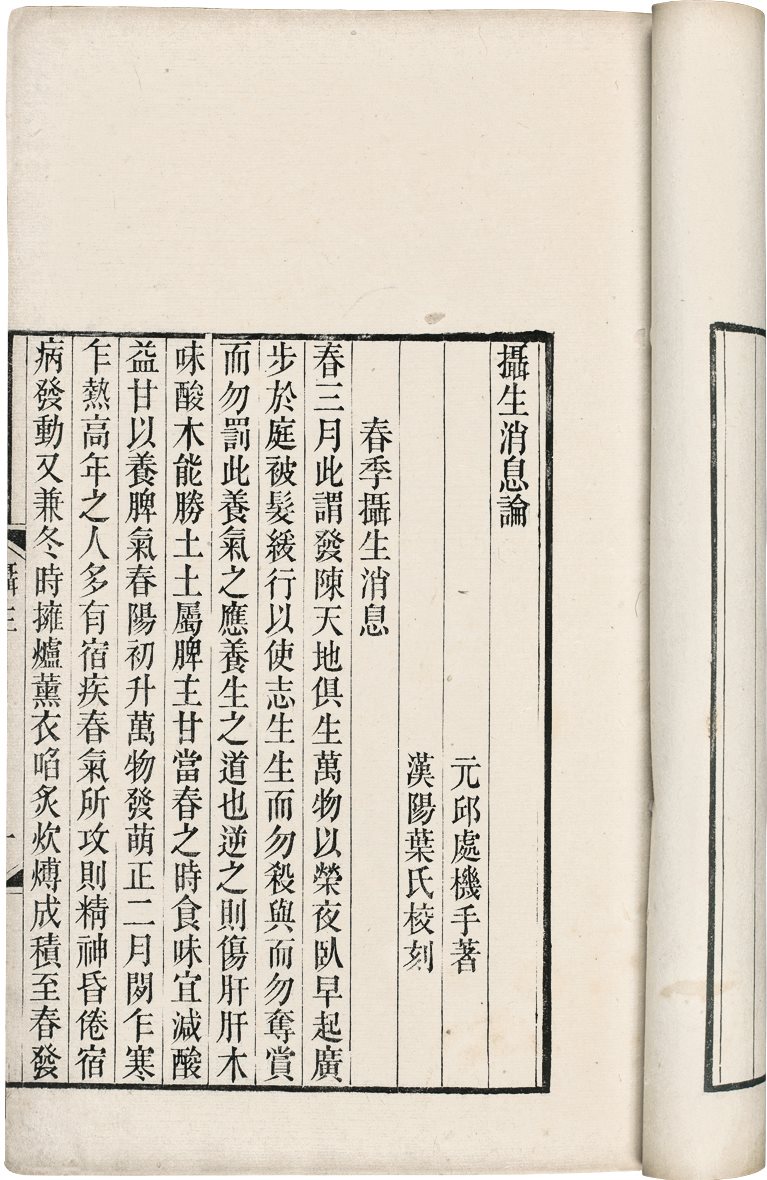 攝生消息論
元邱處機手著
漢陽葉氏校刻
春季攝生消息
春三月此謂發陳天地俱生萬物以榮夜臥早起廣
步於庭被髮緩行以使志生生而勿殺與而勿奪賞
而勿罰此養氣之應養生之道也逆之則傷肝肝木
味酸木能勝土土屬脾主甘當春之時食味宜減酸
益甘以養脾氣春陽初升萬物發萌正二月間乍寒
乍熱高年之人多有宿疾春氣所攻則精神昏倦宿
病發動又兼冬時擁爐薰衣啗炙炊煿成積至春發